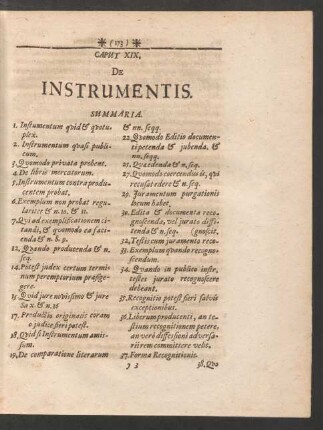 ❋ (173) ❋
CAPUT XIX.
DE
INSTRUMENTIS.
SUMMARIA.
1. Instumentum quid & quotu-
plex.
2. Instrumentum quasi publi-
cum.
3. Quomodo privata probent.
4. De libris mercatorum.
5. Instrumentum contra produ-
centem probat.
6. Exemplum non probat regu-
lariter & n. 10. & 11.
7. Qui ad exemplificationem ci-
tandi, & quomodo ea facienda
cienda & n. 8. 9.
12. Quando producenda & n.
seq.
14. Potest judex certum termi-
num peremptorium præfige-
re.
15. Quid jure novissimo & jure
Sa x. & n. 16
17. Productio originalis coram
quo judice fieri potest.
18. Quid si Instrumentum amis-
sum.
19. De comparatione literarum
& nn. seqq.
22. Quomodo Editio documen-
ti petenda & jubenda, &
nn. seqq.
25. Quæ edenda & n. seq.
27. Quomodo coercendus is, qui
recusat edere & n. seq.
29. Juramentum purgationis
locum habet.
30. Edita & documenta reco-
gnoscenda, vel jurato diffi-
tenda & n. seq. (gnoscit.
32. Testis cum juramento reco-
33. Exemplum quando recogno-
scendum.
34. Quando in publico instr.
testes jurato recognoscere
debeant.
35. Recognitio potest fieri salvis
exceptionibus.
36. Liberum producenti, an te-
stium recognitionem petere,
an verò diffessioni adversa-
rii rem committere velit.
37. Forma Recognitionis.
38. Quo